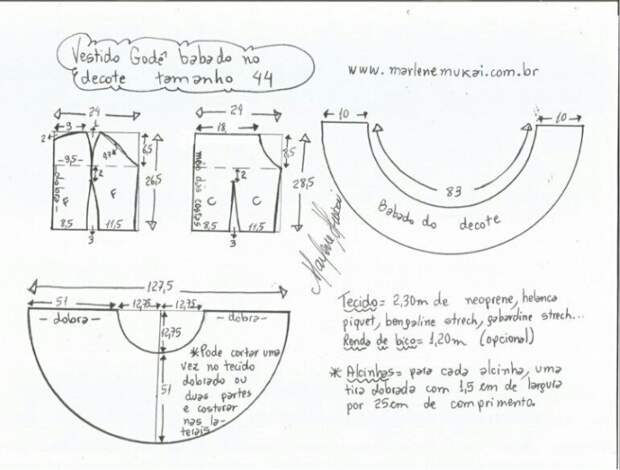 Vestido Godê babado no
decote tamanho 44
www.marlenemukai.com.br
24
9
1
2
6,5
-9,5-
2
26,5
dobra
F
F
8,5
11,5
3
24
18
8,5
meio das costas
2
28,5
C
C
8,5
11,5
3
10
10
83
Babado do decote
Marlene Mukai
127,5
51
12,75
12,75
- dobra -
- dobra -
12,75
51
* Pode cortar uma
vez no tecido
dobrado ou
duas partes
e costurar
nas la-
terais
Tecido = 2,30m de neoprene, helanca
piquet, bengaline strech, gabardine strech...
Renda de bico = 1,20m (opcional)
* Alcinhas = para cada alcinha, uma
tira dobrada com 1,5 cm de largura
por 25cm de comprimento.